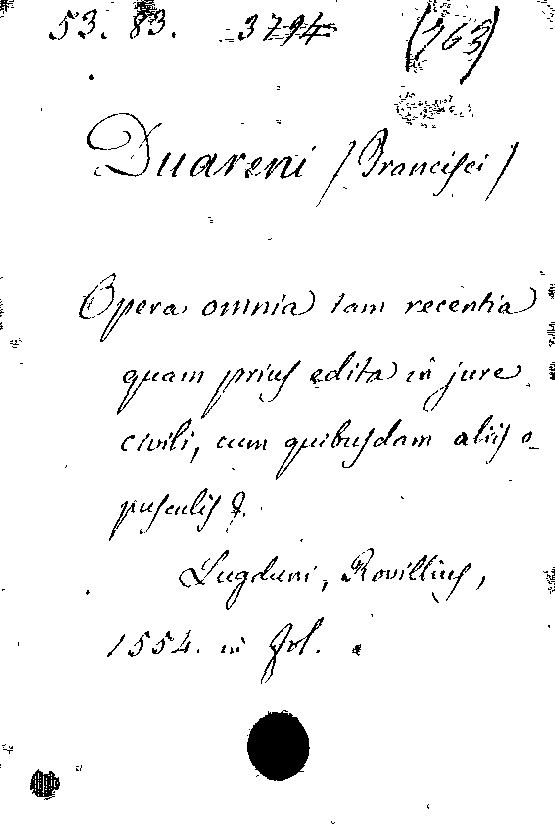 53. 83. 3794 (763)
Duareni (Francisci)
Opera omnia tam recentia
quam prius edita in jure
civili, cum quibusdam aliis o-
pusculis &.
Lugduni, Rovillius,
1554. in fol.